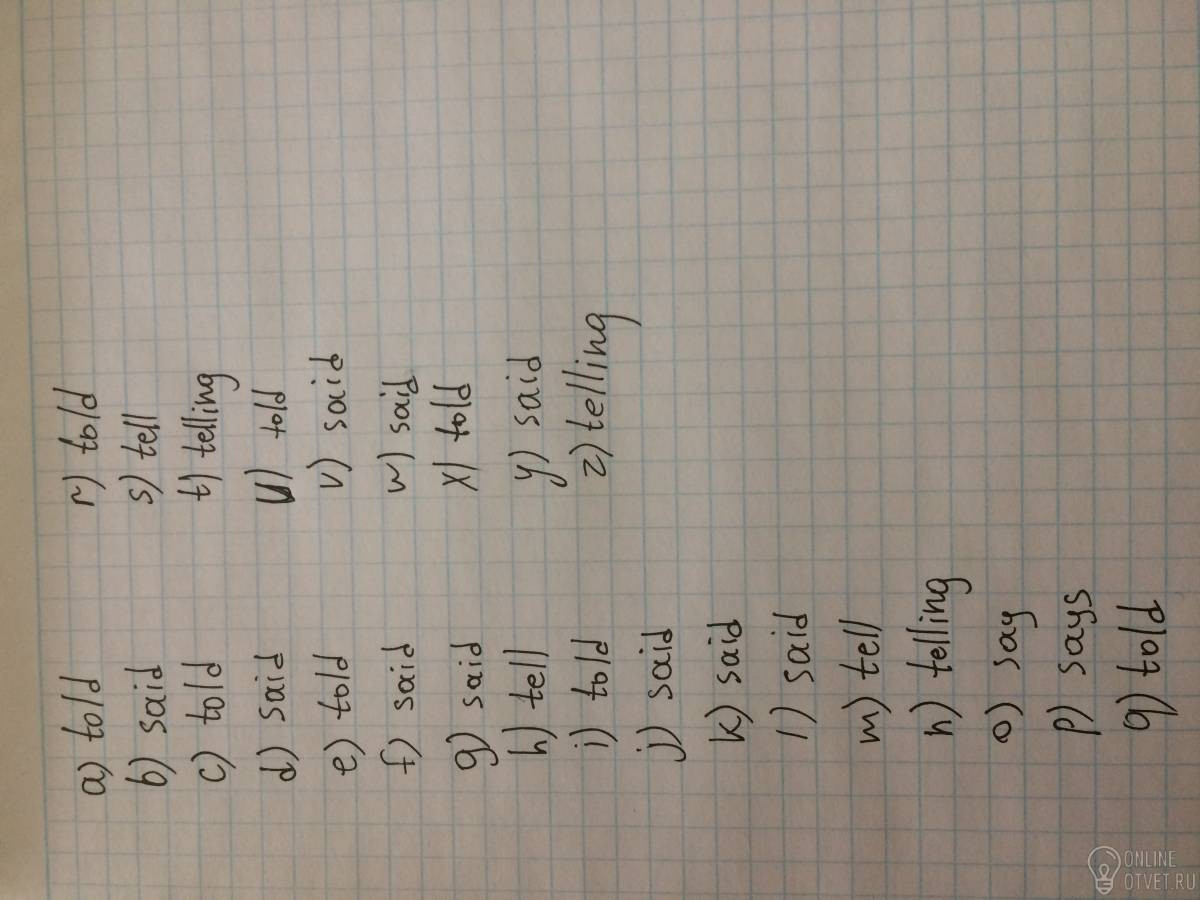 a) told
b) said
c) told
d) said
e) told
f) said
g) said
h) tell
i) told
j) said
k) said
l) said
m) tell
n) telling
o) say
p) says
q) told
r) told
s) tell
t) telling
u) told
v) said
w) said
x) told
y) said
z) telling
ONLINE
OTVET.RU